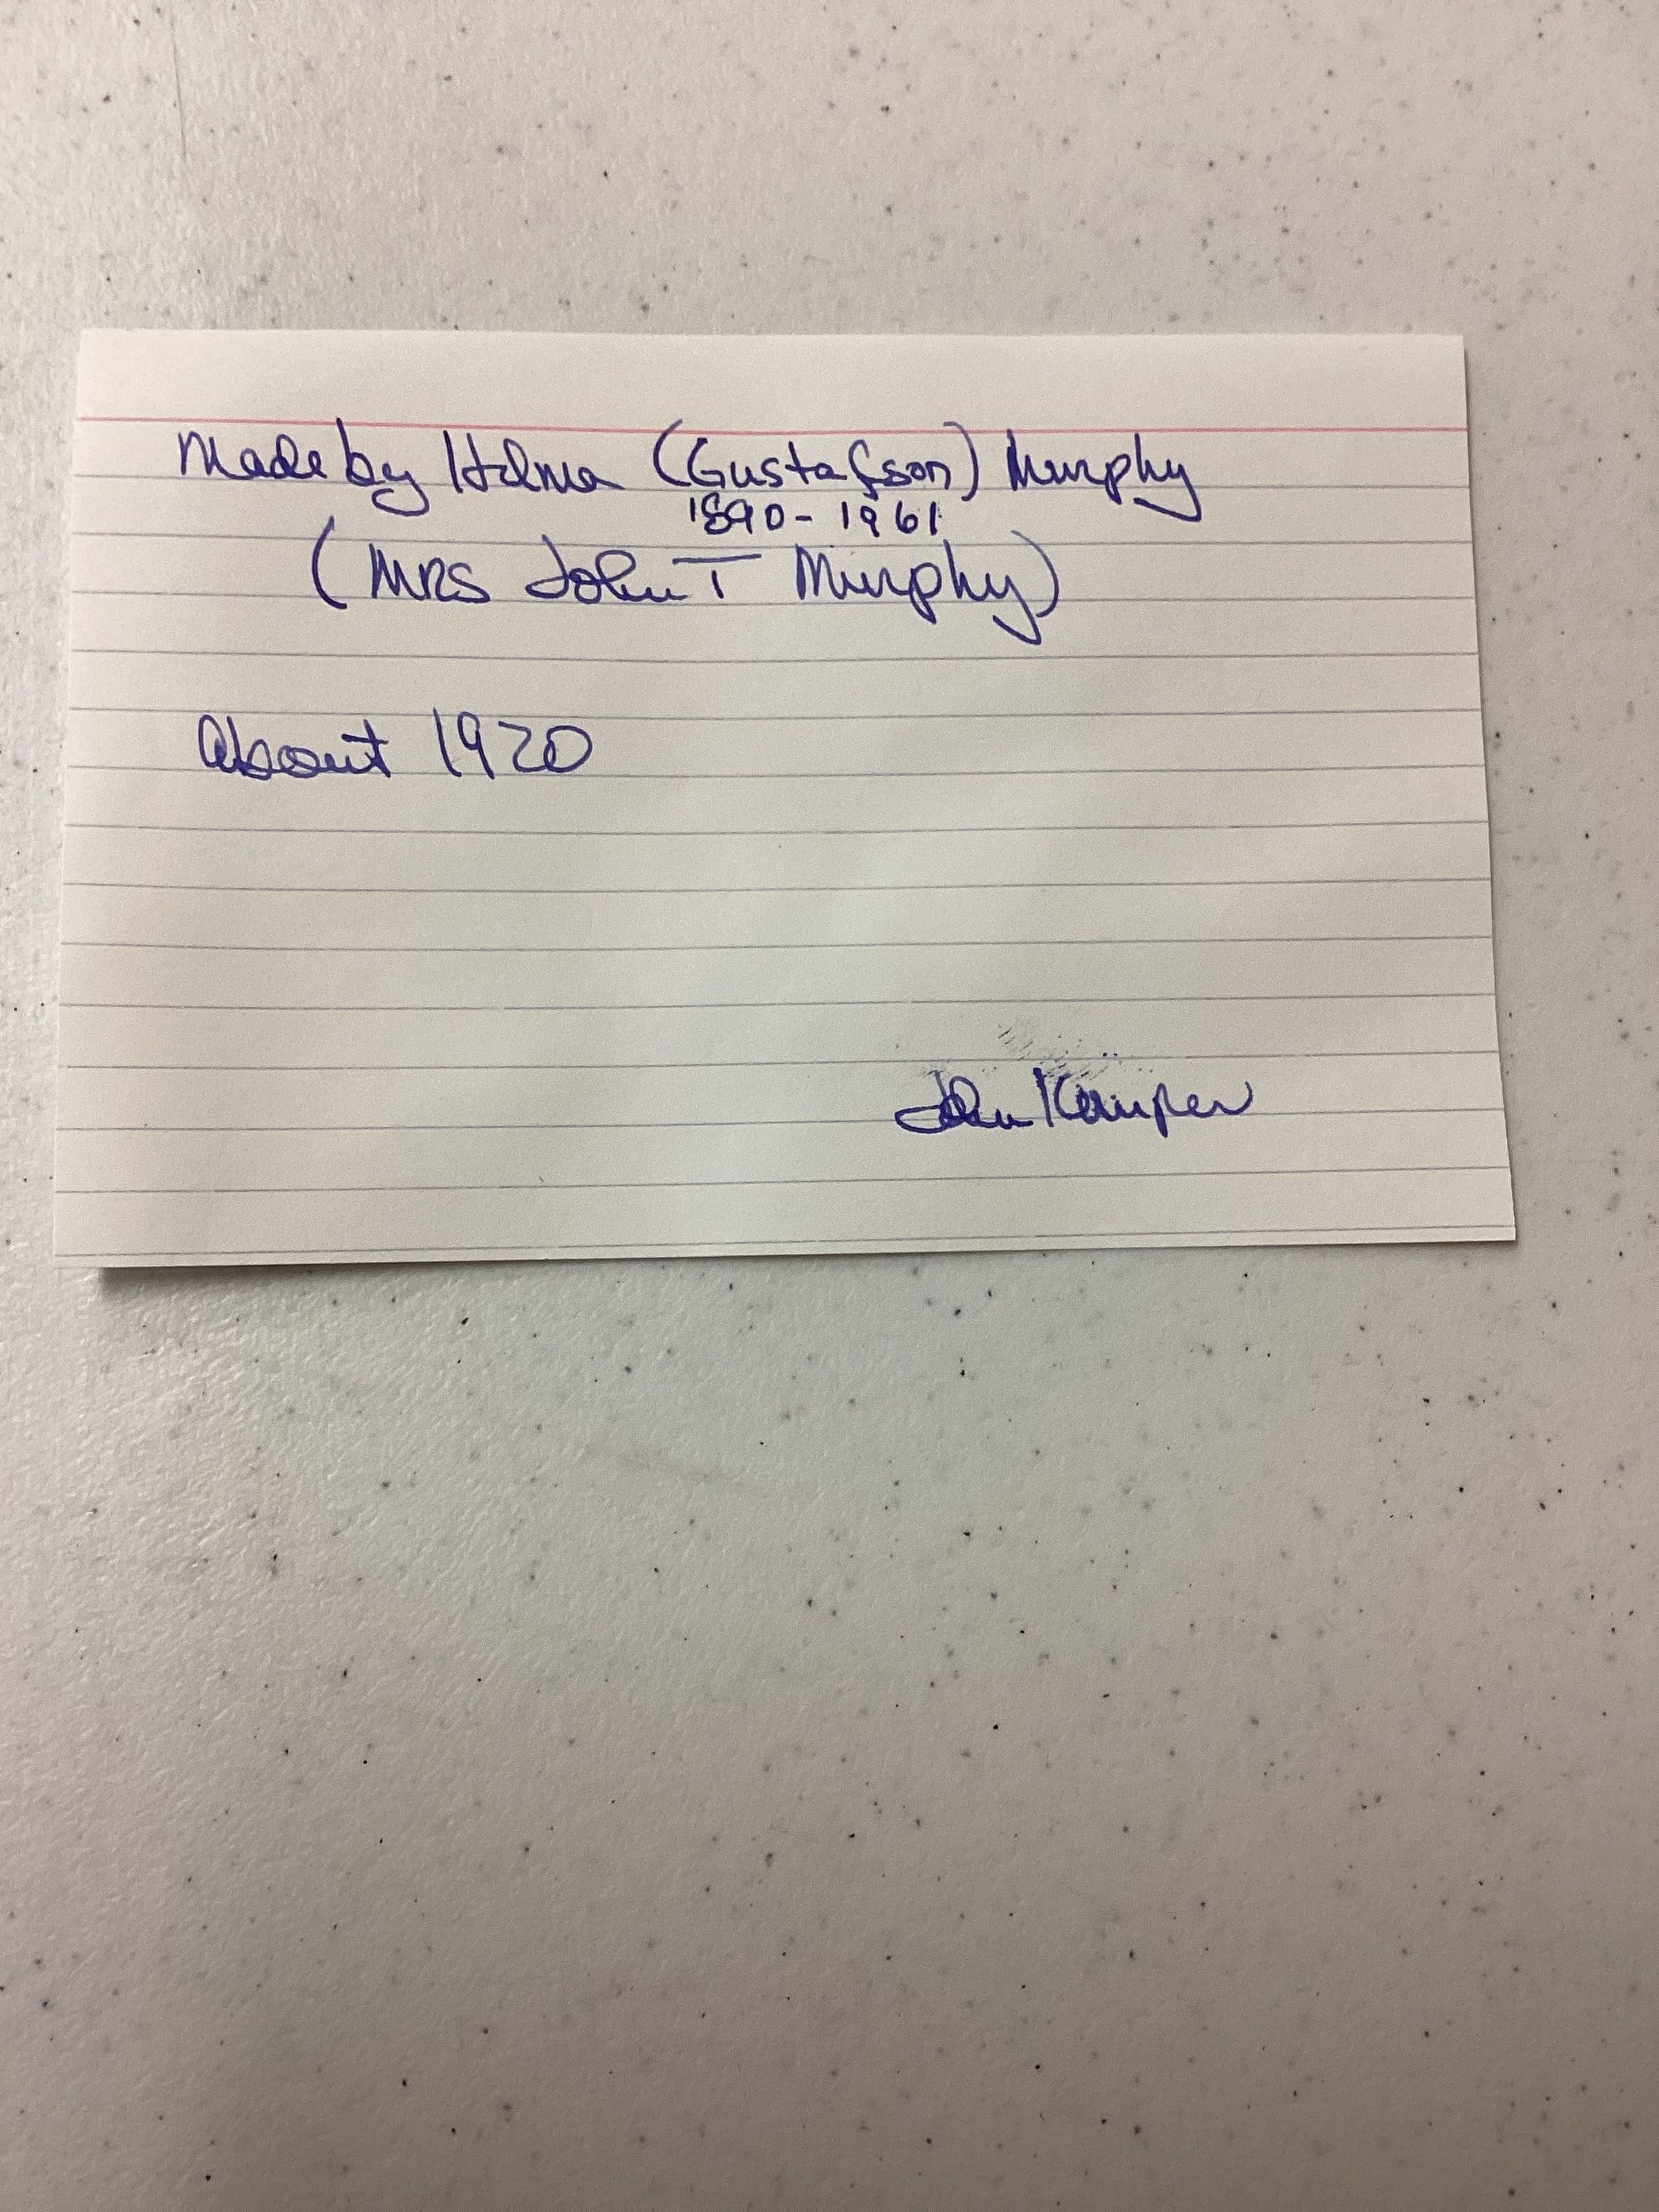 Made by Hilma (Gustafson) Murphy
1890-1961
(MRS John T Murphy)
About 1920
John Kemper